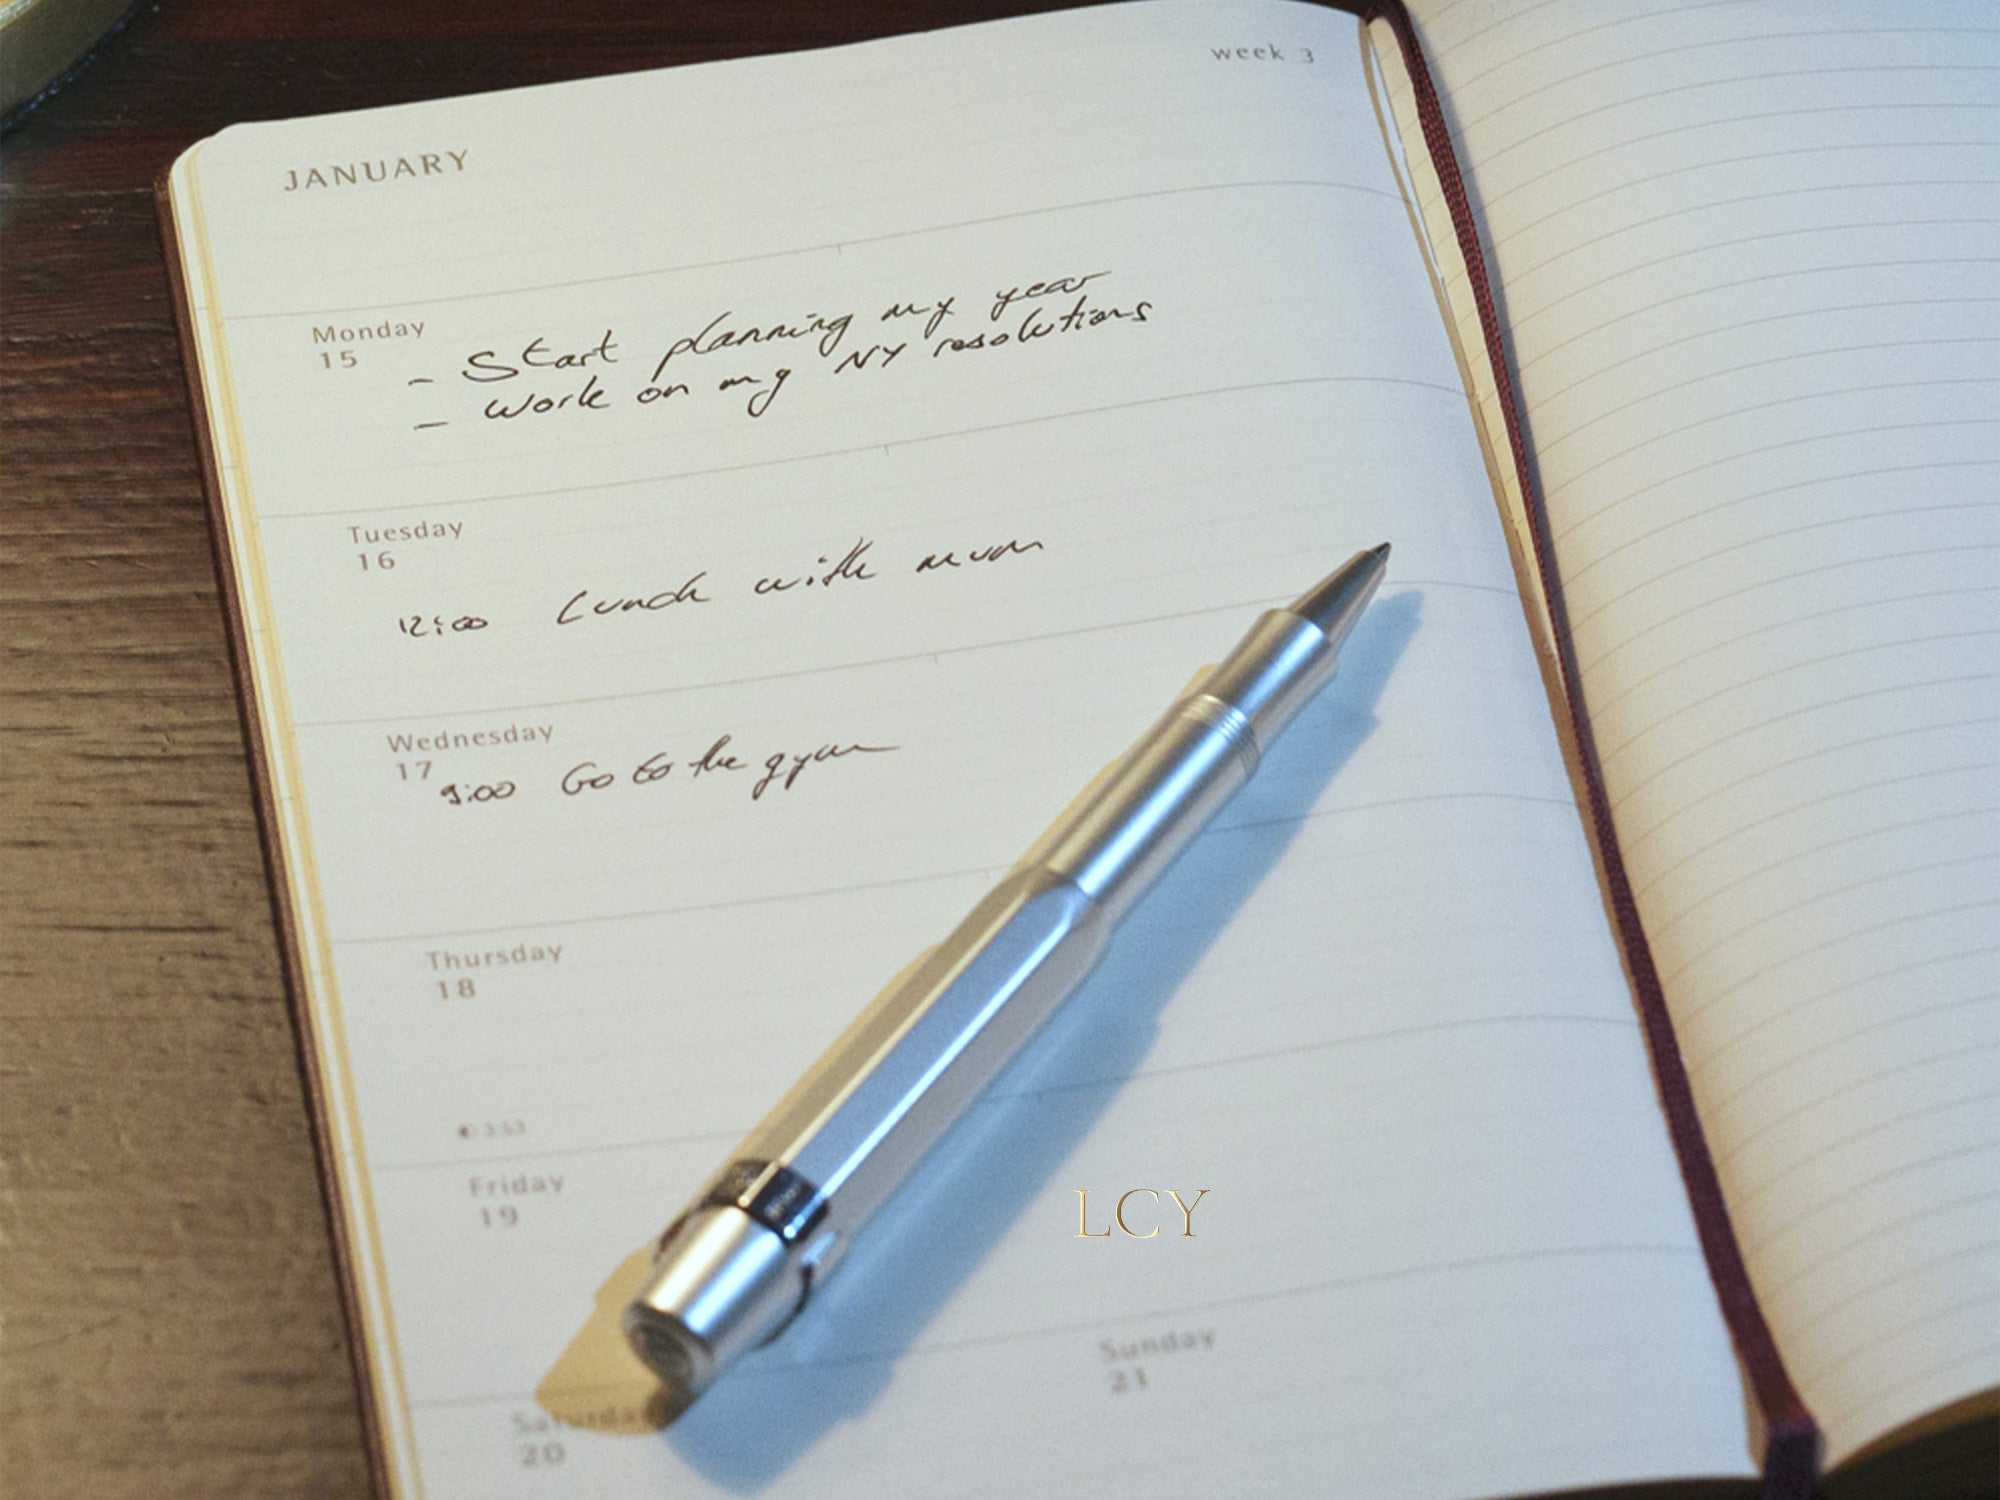 week 3
JANUARY
Monday
15
- Start planning my year
- Work on my NY resolutions
Tuesday
16
12:00 Lunch with mum
Wednesday
17
9:00 Go to the gym
Thursday
18
Friday
19
LCY
Saturday
20
Sunday
21